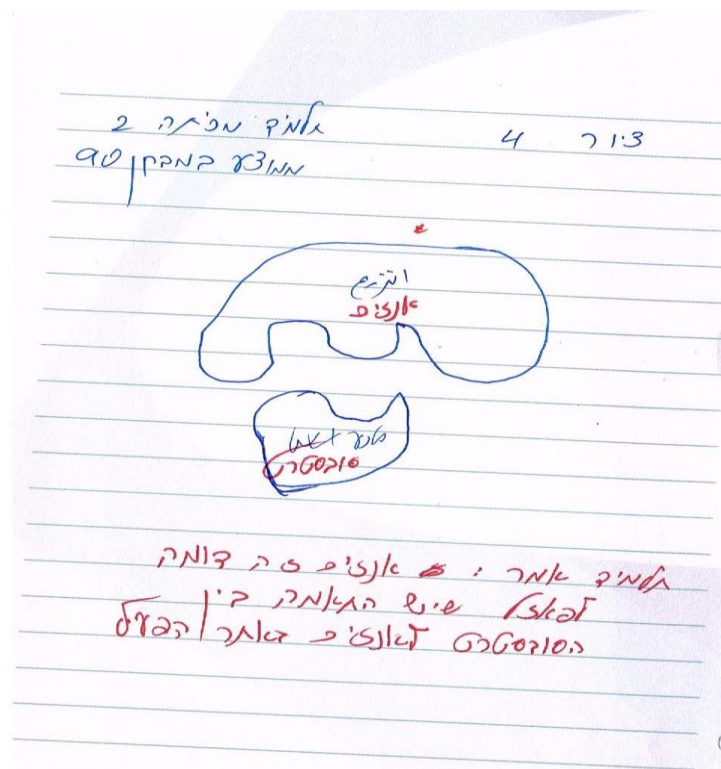 ציור 4 תלמיד מכיתה 2
ממוצע במבחן 90
אנזים
סובסטרט
תלמיד אמר : אנזים זה דומה
לפאזל שיש התאמה בין
הסובסטרט לאנזים באתר הפעיל